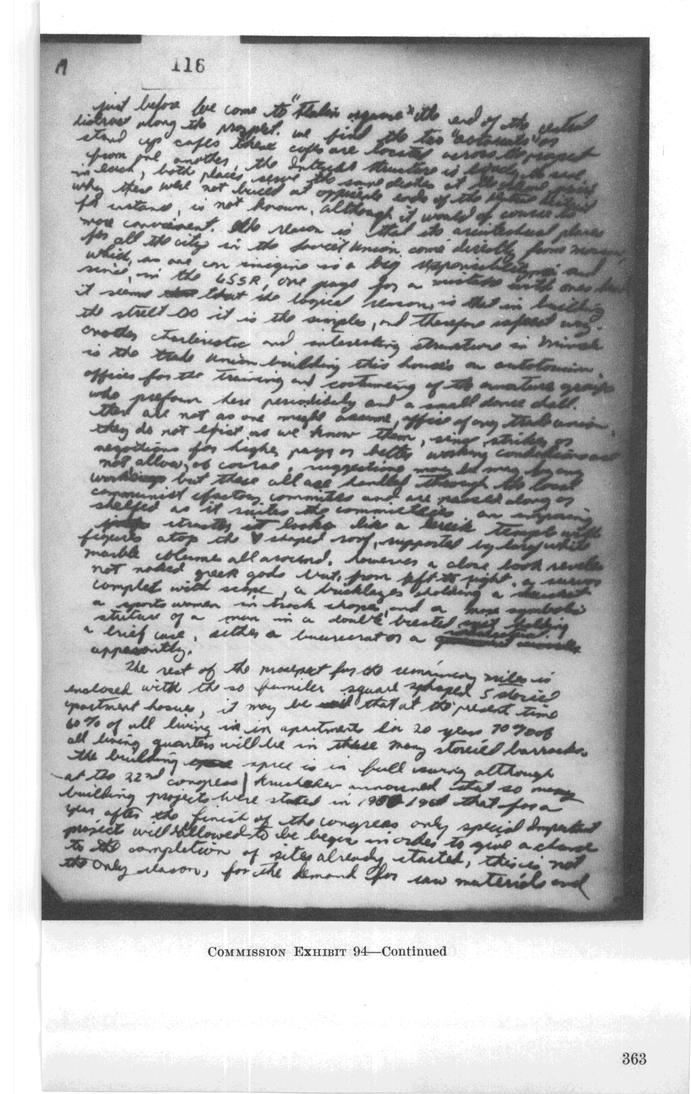 116
just before we come to "Stalin square" the end of the central
district along the prospect. we find the two "automats" or
stand up cafes these cafes are located across the prospect
from one another, the interal structure is
in each, both places serve the same dishes at the same prices
why these were not build at opposite ends of the
for instance, is not known, although it would of course be
more convenient. the reason is that its plans
for all the citys in the Soviet Union come directly from Moscow,
which, as one can imagine is a big responsibility and
since, in the USSR, one pays for a mistake with ones
it seems that the logical reason, is that in building
the street so it is the simples, and therefore safest way.
another charteristic and interesting structure in Minsk
is the trade union building this houses an
offices for the training and costuming of the amature groups
who prefourm here periodicaly and a small dance hall.
there are not as one might assume, offices of any trade union,
they do not exist as we know them, since strikes or
negotions for higher pay or better working conditions are
not allow, of course, suggestions may be may by any
but these all are handled through the local
communist factory committee and are passed along or
shelfed as it suites the an
it looks like a temple with
figures atop the V shaped roof, supported by large white
marble colums all around. however a close look reveles
not naked greek gods but, from left to right, a
complet with scope, a bricklayer holding a bucket
a sports women in track and a more symbolic
of a man in a double brested suit holding
a brief case, either a or a
apparently.
The rest of the prospect for the miles is
enclosed with the so square 5 storied
apartment houses, it may be that at the present time
60% of all living is in apartments in 20 years
all living quarters will be in these many storied barracks.
the building is in full although
at the 22nd congress Kruschev announced that so many
building projects were stated in that for a
year after the finish of the congress only special important
projects will allowed to be begin in order to give a chance
to the completion of sites already started, this is not
the only reason, for the demand for raw materials and
COMMISSION EXHIBIT 94—Continued
363